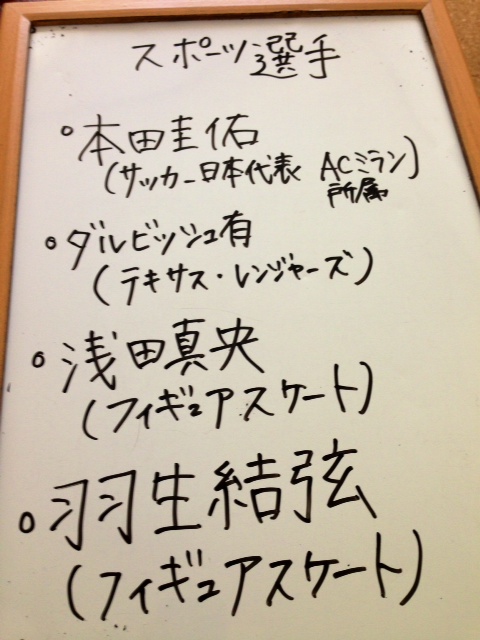 スポーツ選手
○本田圭佑
(サッカー日本代表 ACミラン)
所属
○ダルビッシュ有
(テキサス・レンジャーズ)
○浅田真央
(フィギュアスケート)
○羽生結弦
(フィギュアスケート)